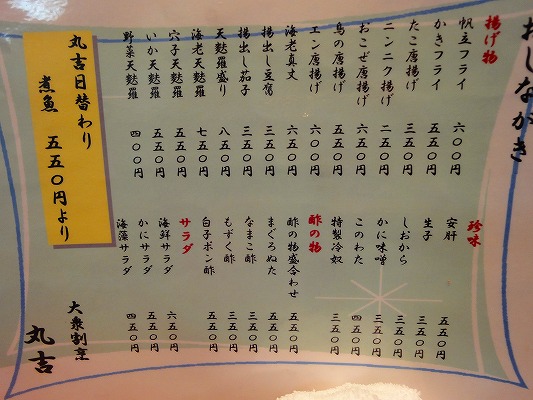 おしながき
揚げ物
帆立フライ 六〇〇円
かきフライ 五五〇円
たこ唐揚げ 三五〇円
ニンニク揚げ 二五〇円
おこぜ唐揚げ 六五〇円
鳥の唐揚げ 五五〇円
エン唐揚げ 六〇〇円
海老真丈 六五〇円
揚出し豆腐 三五〇円
揚出し茄子 三五〇円
天麩羅盛り 八五〇円
海老天麩羅 七五〇円
穴子天麩羅 五五〇円
いか天麩羅 五五〇円
野菜天麩羅 四〇〇円
珍味
安肝 五五〇円
生子 三五〇円
しおから 三五〇円
かに味噌 三五〇円
このわた 四五〇円
特製冷奴 三五〇円
酢の物
酢の物盛合わせ 五五〇円
まぐろぬた 五五〇円
なまこ酢 三五〇円
もずく酢 三五〇円
白子ポン酢 五五〇円
サラダ
海鮮サラダ 六五〇円
かにサラダ 五五〇円
海藻サラダ 四五〇円
丸吉日替わり
煮魚 五五〇円より
大衆割烹
丸吉